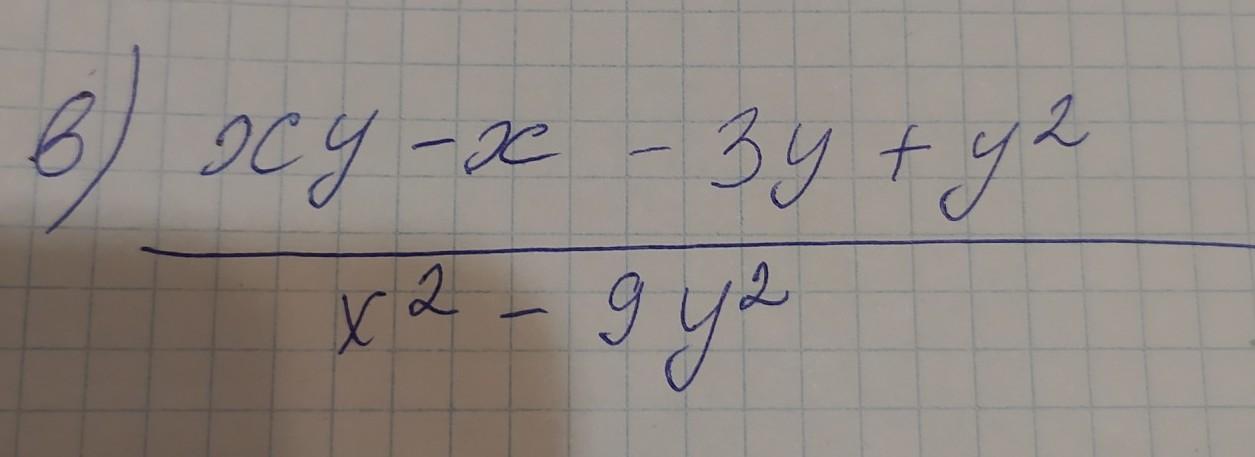 в) xy - x - 3y + y²
x² - 9y²